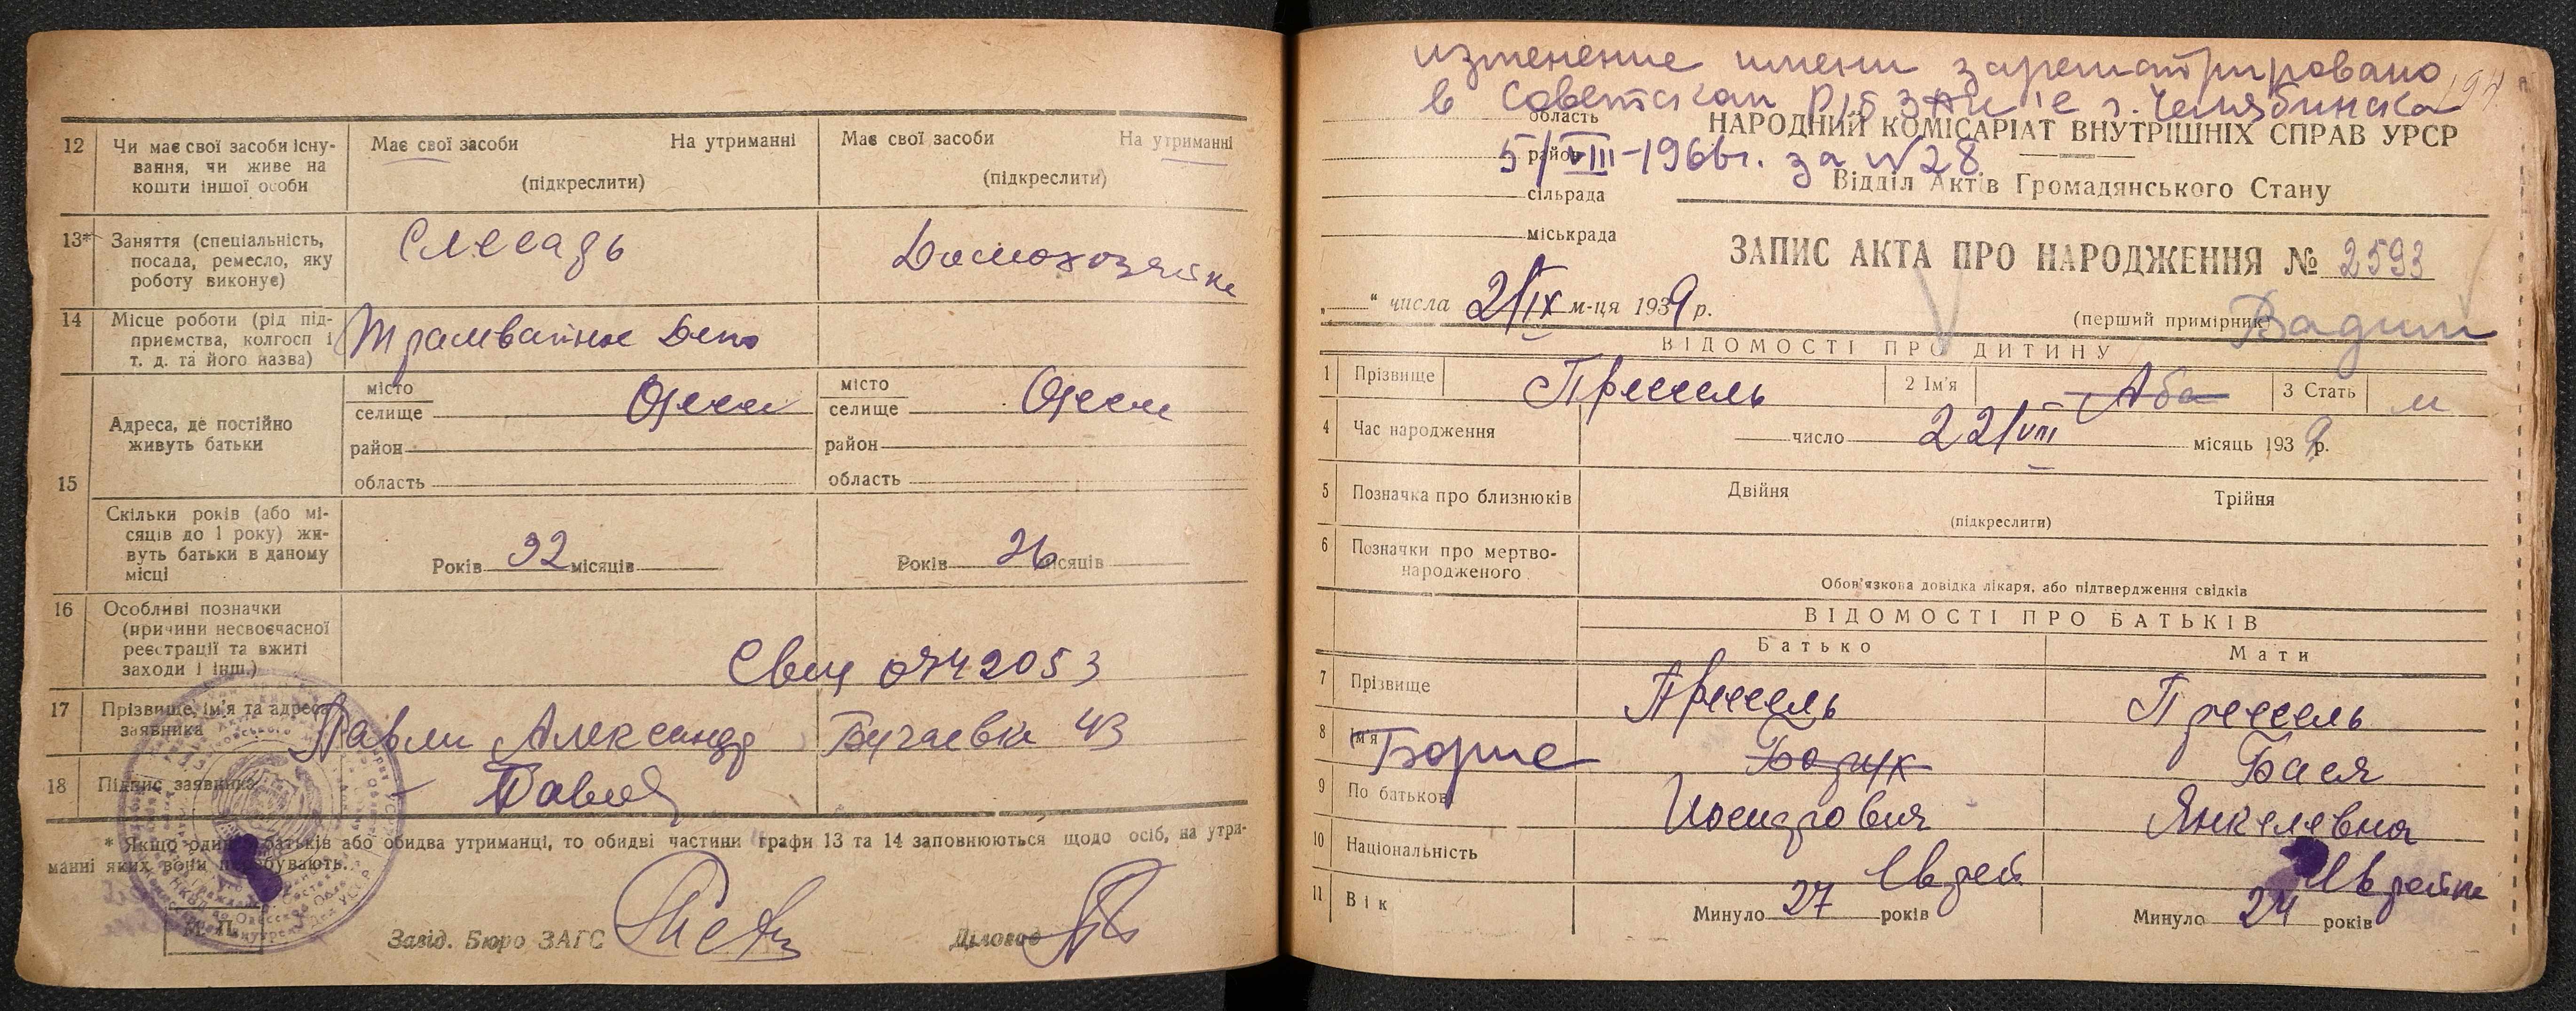 12 Чи має свої засоби існу-
вання, чи живе на
кошти іншої особи
Має свої засоби На утриманні
(підкреслити)
Має свої засоби На утриманні
(підкреслити)
13* Заняття (спеціальність,
посада, ремесло, яку
роботу виконує)
Слесарь
Домохозяйка
14 Місце роботи (рід під-
приємства, колгосп і
т. д. та його назва)
Трамвайное Депо
15 Адреса, де постійно
живуть батьки
місто
селище Одесса
район
область
місто
селище Одесса
район
область
Скільки років (або мі-
сяців до 1 року) жи-
вуть батьки в даному
місці
Років 32 місяців
Років 26 місяців
16 Особливі позначки
(причини несвоєчасної
реєстрації та вжиті
заходи і інш.)
17 Прізвище, ім'я та адреса
заявника
Александр
43
18 Підпис заявника
* Якщо один з батьків або обидва утриманці, то обидві частини графи 13 та 14 заповнюються щодо осіб, на утри-
манні яких вони перебувають.
М. П.
Завід. Бюро ЗАГС
Діловод
изменение имени зарегистрировано
в Советском р/б ЗАГС'е г. Челябинска
5/VIII-1966г. за N 28
область
район
сільрада
міськрада
НАРОДНИЙ КОМІСАРІАТ ВНУТРІШНІХ СПРАВ УРСР
Відділ Актів Громадянського Стану
ЗАПИС АКТА ПРО НАРОДЖЕННЯ № 2593
" числа 2/IX м-ця 1939 р.
(перший примірник)
Вадим
ВІДОМОСТІ ПРО ДИТИНУ
1 Прізвище Прессель 2 Ім'я Аба 3 Стать м
4 Час народження число 22/VIII місяць 1939 р.
5 Позначка про близнюків Двійня Трійня
(підкреслити)
6 Позначки про мертво-
народженого
Обов'язкова довідка лікаря, або підтвердження свідків
ВІДОМОСТІ ПРО БАТЬКІВ
Батько Мати
7 Прізвище Прессель Прессель
8 Ім'я Борис Борух Бася
9 По батькові Иосифович Янкелевна
10 Національність Еврей Еврейка
11 Вік Минуло 27 років Минуло 24 років